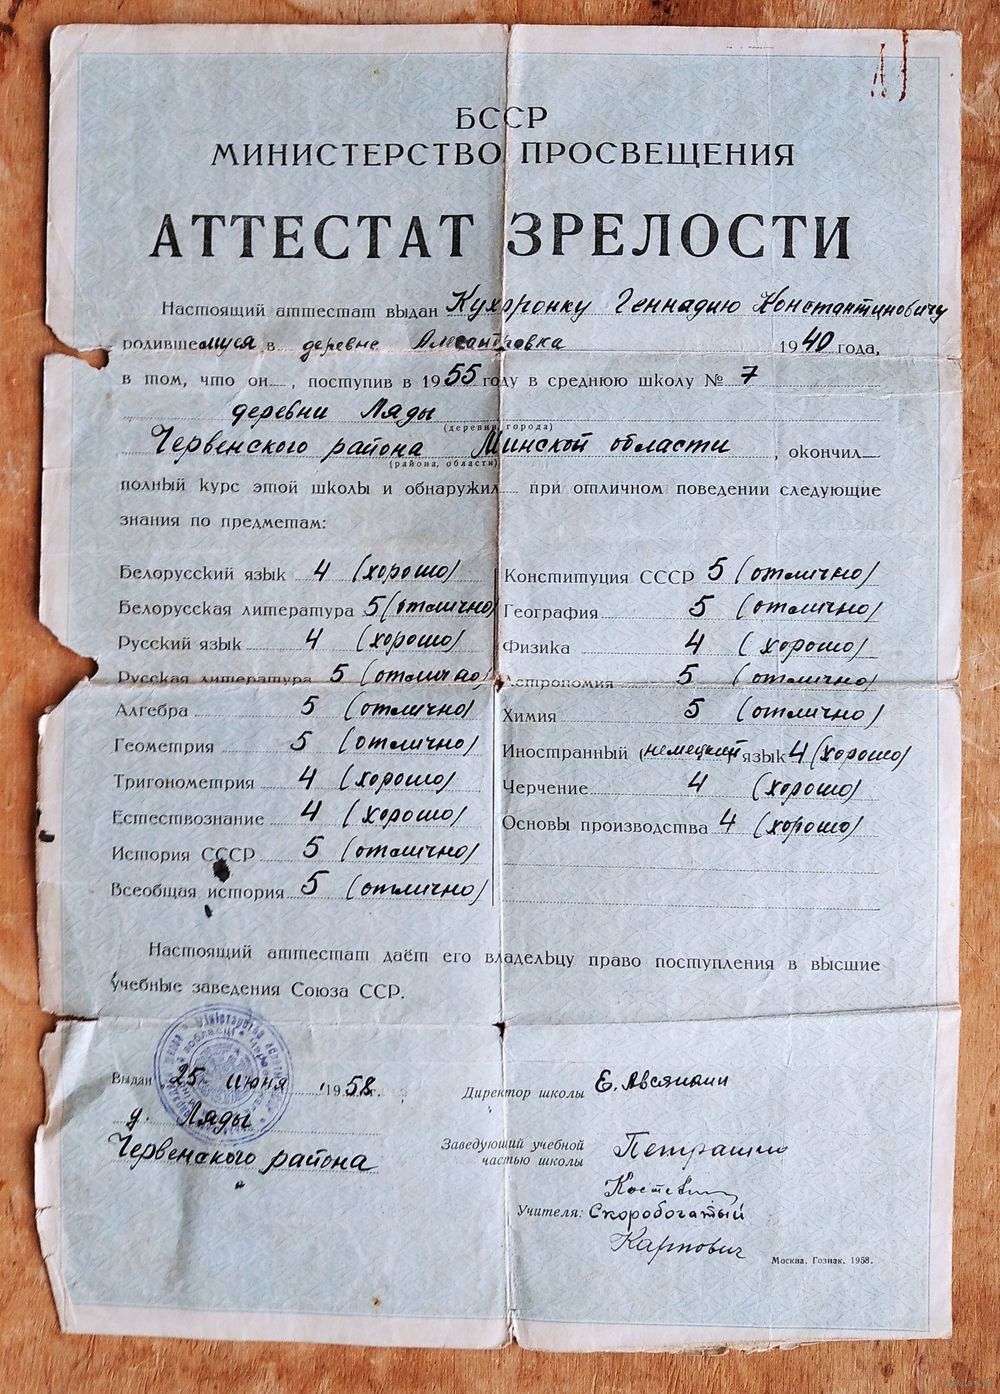 БССР
МИНИСТЕРСТВО ПРОСВЕЩЕНИЯ
АТТЕСТАТ ЗРЕЛОСТИ
Настоящий аттестат выдан Кухаронку Геннадию Константиновичу
родившемуся в деревне 1940 года,
в том, что он , поступив в 1955 году в среднюю школу № 7
деревни Ляды
(деревни, города)
Червенского района Минской области , окончил
(района, области)
полный курс этой школы и обнаружил при отличном поведении следующие
знания по предметам:
Белорусский язык 4 (хорошо)
Белорусская литература 5 (отлично)
Русский язык 4 (хорошо)
Русская литература 5 (отлично)
Алгебра 5 (отлично)
Геометрия 5 (отлично)
Тригонометрия 4 (хорошо)
Естествознание 4 (хорошо)
История СССР 5 (отлично)
Всеобщая история 5 (отлично)
Конституция СССР 5 (отлично)
География 5 (отлично)
Физика 4 (хорошо)
Астрономия 5 (отлично)
Химия 5 (отлично)
Иностранный (немецкий) язык 4 (хорошо)
Черчение 4 (хорошо)
Основы производства 4 (хорошо)
Настоящий аттестат даёт его владельцу право поступления в высшие
учебные заведения Союза ССР.
Выдан „25 июня 1958 г.
д. Ляды
Червенского района
Директор школы
Заведующий учебной
частью школы
Учителя: Скоробогатый
Карпович
Москва. Гознак. 1958.